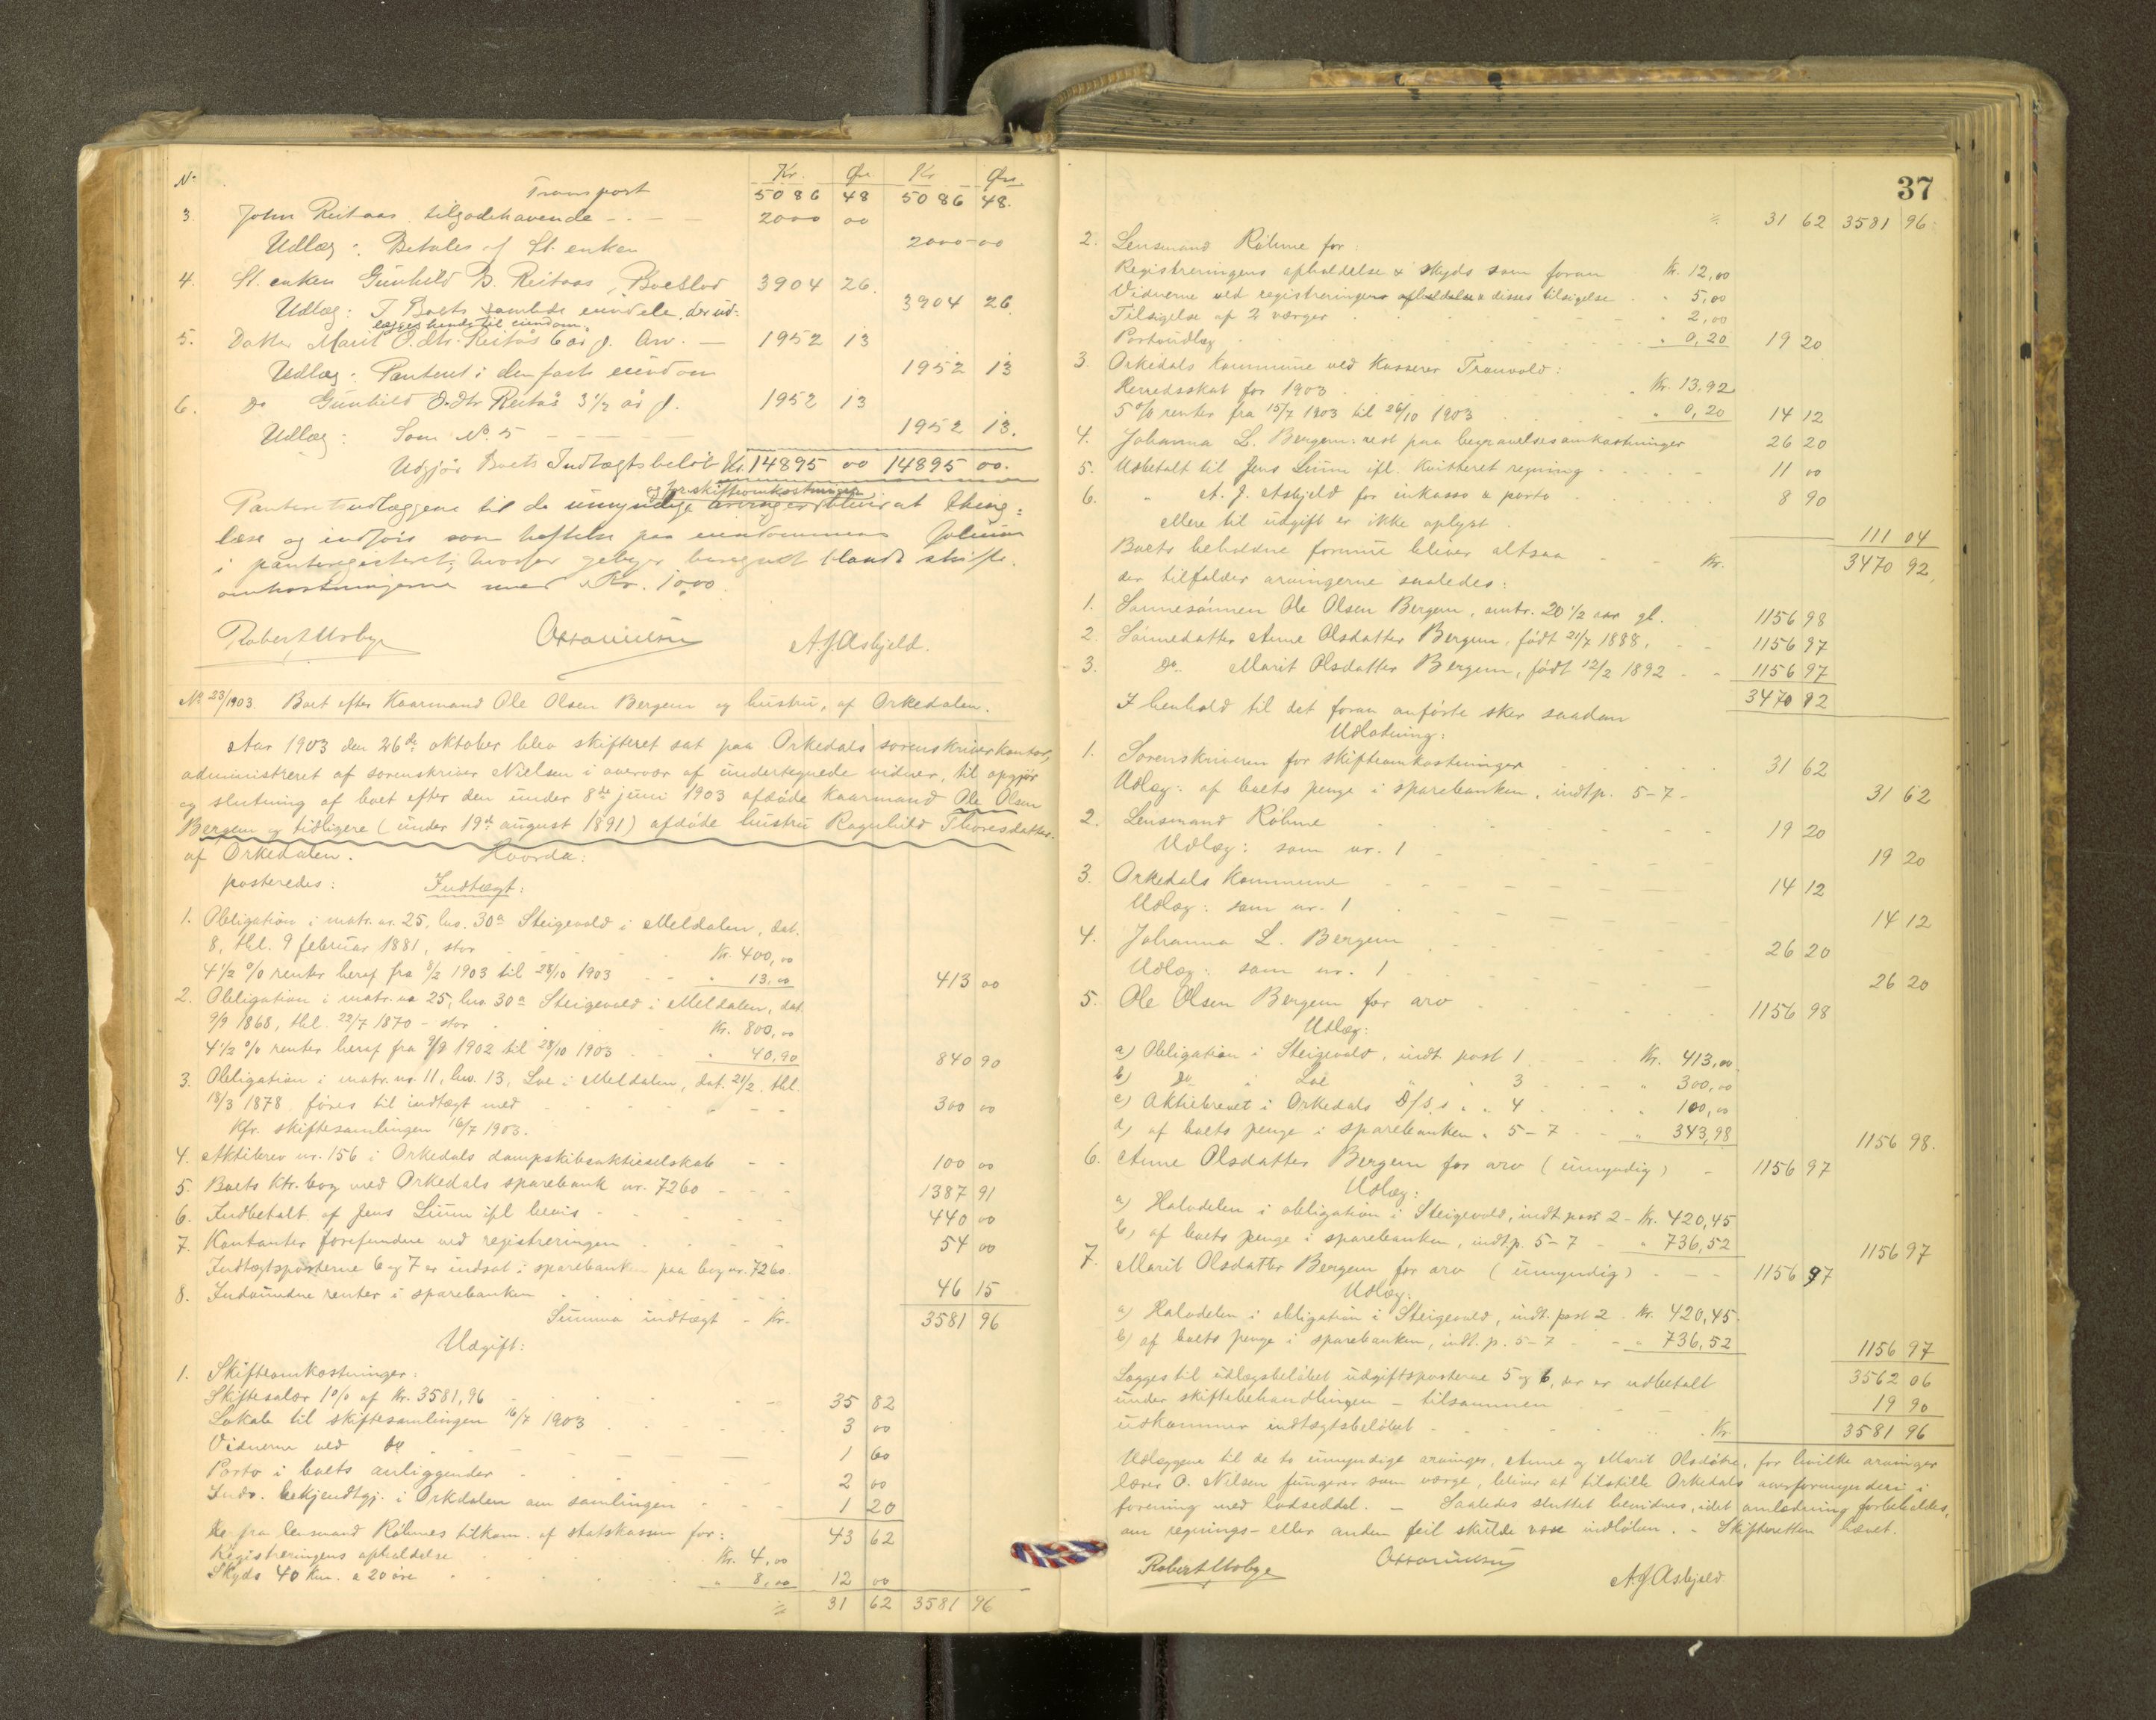 No Kr. Øre Kr Øre
Transport 5086 48 5086 48.
3. John Reitaas tilgodehavende - - - 2000 00
Udlæg: Betales af St. enken 2000-00
4. St. enken Gunhild B. Reitaas, Boeslod 3904 26.
Udlæg: I Boets samlede eiendele, der ud-
lægges hende til eiendom. 3904 26.
5. Datter Marit O.dtr. Reitås 6 år g. Arv. - 1952 13
Udlæg: Panteret i den faste eiendom 1952 13
6. Do Gunhild O.dtr Reitås 3 1/2 år g. 1952 13
Udlæg: Som No. 5 - - - - 1952 13.
Udgjør Boets Indtægtsbeløb Kr. 14895 00 14895 00.
og for skifteomkostningerne
Panteretsudlæggene til de umyndige arvinger bliver at thing-
læse og indføre som heftelse paa eiendommens folium
i panteregisteret; hvorfor gebyr beregnet blandt skifte-
omkostningerne med Kr. 1,00.
Robert Mobye Otto Nielsen A. J. Asbjeld.
No 23/1903. Boet efter Kaarmand Ole Olsen Bergem og hustru, af Orkedalen.
Aar 1903 den 26de oktober blev skifteret sat paa Orkedals sorenskriverkontor,
administreret af sorenskriver Nielsen i overvær af undertegnede vidner, til opgjør
og slutning af boet efter den under 8de juni 1903 afdøde kaarmand Ole Olsen
Bergem og tidligere (under 19de august 1891) afdøde hustru Ragnhild Thoresdatter
af Orkedalen. Hvorda:
posteredes: Indtægt:
1. Obligation i matr. nr. 25, lnr. 30a Steigevold i Meldalen, dat.
8, thl. 9 februar 1881, stor Kr. 400,00
4 1/2 % renter heraf fra 8/2 1903 til 28/10 1903 - - " 13,00 413 00
2. Obligation i matr. nr 25, lnr 30a Steigevold i Meldalen, dat.
9/9 1868, thl. 22/7 1870 - stor Kr. 800,00
4 1/2 % renter heraf fra 9/9 1902 til 28/10 1903 " 40,90 840 90
3. Obligation i matr. nr. 11, lnr. 13, Loe i Meldalen, dat. 21/2, thl.
18/3 1878, føres til indtægt med - - - 300 00
Kfr. skiftesamlingen 16/7 1903.
4. Aktiebrev nr. 156 i Orkedals dampskibsaktieselskab - - 100 00
5. Boets ktr. bog med Orkedals sparebank nr. 7260 - - - 1387 91
6. Indbetalt af Jens Lium ifl bevis - 440 00
7. Kontanter forefundne ved registreringen 54 00
Indtægtsposterne 6 og 7 er indsat i sparebanken paa bog nr. 7260.
8. Indvundne renter i sparebanken 46 15
Summa indtægt - Kr. 3581 96
Udgift:
1. Skifteomkostninger:
Skiftesalær 1% af Kr. 3581,96 35 82
Lokale til skiftesamlingen 16/7 1903 3 00
Vidnerne ved do 1 60
Porto i boets anliggender 2 00
Indr. bekjendtgj. i Orkdalen om samlingen 1 20
43 62
fra lensmand Röhmes tilkom. af statskassen for:
Registreringens afholdelse Kr. 4,00
Skyds 40 km. a 20 øre " 8,00 12 00
31 62 3581 96
37
31 62 3581 96.
2. Lensmand Röhme for:
Registreringens afholdelse & skyds som foran Kr. 12,00
Vidnerne ved registreringens afholdelse & disses tilsigelse " 5,00
Tilsigelse af 2 værger " 2,00
Portoudlæg " 0,20 19 20
3. Orkedals kommune ved kasserer Tranvold:
Herredsskat for 1903 Kr. 13,92
5% renter fra 15/7 1903 til 26/10 1903 " 0,20 14 12
4. Johanna L. Bergem: rest paa begravelsesomkostninger 26 20
5. Udbetalt til Jens Lium ifl. kvitteret regning - - - 11 00
6. " A. J. Asbjeld for inkasso & porto 8 90
Mere til udgift er ikke oplyst. 111 04
Boets beholdne formue bliver altsaa - Kr. 3470 92,
der tilfalder arvingerne saaledes:
1. Sønnesønnen Ole Olsen Bergem, omtr. 20 1/2 aar gl. 1156 98
2. Sønnedatter Anne Olsdatter Bergem, født 21/7 1888, - - 1156 97
3. Do. Marit Olsdatter Bergem, født 12/2 1892 - - 1156 97
3470 92
I henhold til det foran anførte sker saadan
Udlodning:
1. Sorenskriveren for skifteomkostninger 31 62
Udlæg: af boets penge i sparebanken, indtp. 5-7 - 31 62
2. Lensmand Röhme 19 20
Udlæg: som nr. 1 - 19 20
3. Orkedals kommune 14 12
Udlæg: som nr. 1 14 12
4. Johanna L. Bergem 26 20
Udlæg: som nr. 1 26 20
5. Ole Olsen Bergem for arv 1156 98
Udlæg:
a) Obligation i Steigevold, indt post 1 Kr. 413,00
b) Do " Loe " " 3 " 300,00
c) Aktiebrevet i Orkedals D/S.s " " 4 " 100,00
d) af boets penge i sparebanken " 5-7 " 343,98 1156 98.
6. Anne Olsdatter Bergem for arv (umyndig) - 1156 97
Udlæg:
a) Halvdelen i obligation i Steigevold, indt. post 2 - Kr. 420,45
b) af boets penge i sparebanken, indt.p. 5-7 - " 736,52 1156 97
7. Marit Olsdatter Bergem for arv (umyndig) - - 1156 97
Udlæg:
a) Halvdelen i obligation i Steigevold, indt. post 2 Kr. 420,45
b) af boets penge i sparebanken, indt. p. 5-7 - - " 736,52 1156 97
Lægges til udlægsbeløbet udgiftsposterne 5 og 6, der er udbetalt 3562 06
under skiftebehandlingen - tilsammen 19 90
udkommer indtægtsbeløbet Kr. 3581 96
Udlæggene til de to umyndige arvinger, Anne og Marit Olsdøtre, for hvilke arvinger
lærer O. Nilsen fungerer som værge, bliver at tilstille Orkedals overformynderi i
forening med lodseddel. - Saaledes sluttet bevidnes, idet omlodning forbeholdes,
om regnings- eller anden feil skulde være indløben. - Skifteretten hævet.
Robert Mobye Otto Nielsen A. J. Asbjeld